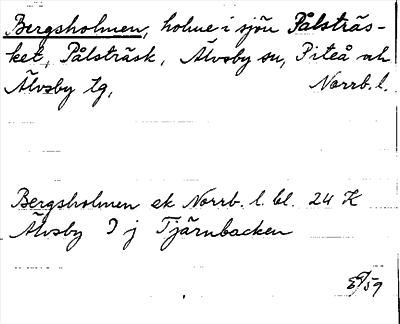 Bergsholmen, holme i sjön Pålsträs-
ket, Pålsträsk, Älvsby sn, Piteå o. h
Älvsby tg, Norrb. l.
Bergsholmen ek Norrb. l. bl. 24 K
Älvsby I j Tjärnbacken
59